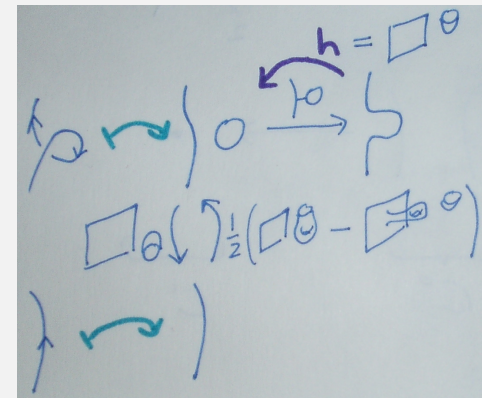 h =
½( − )